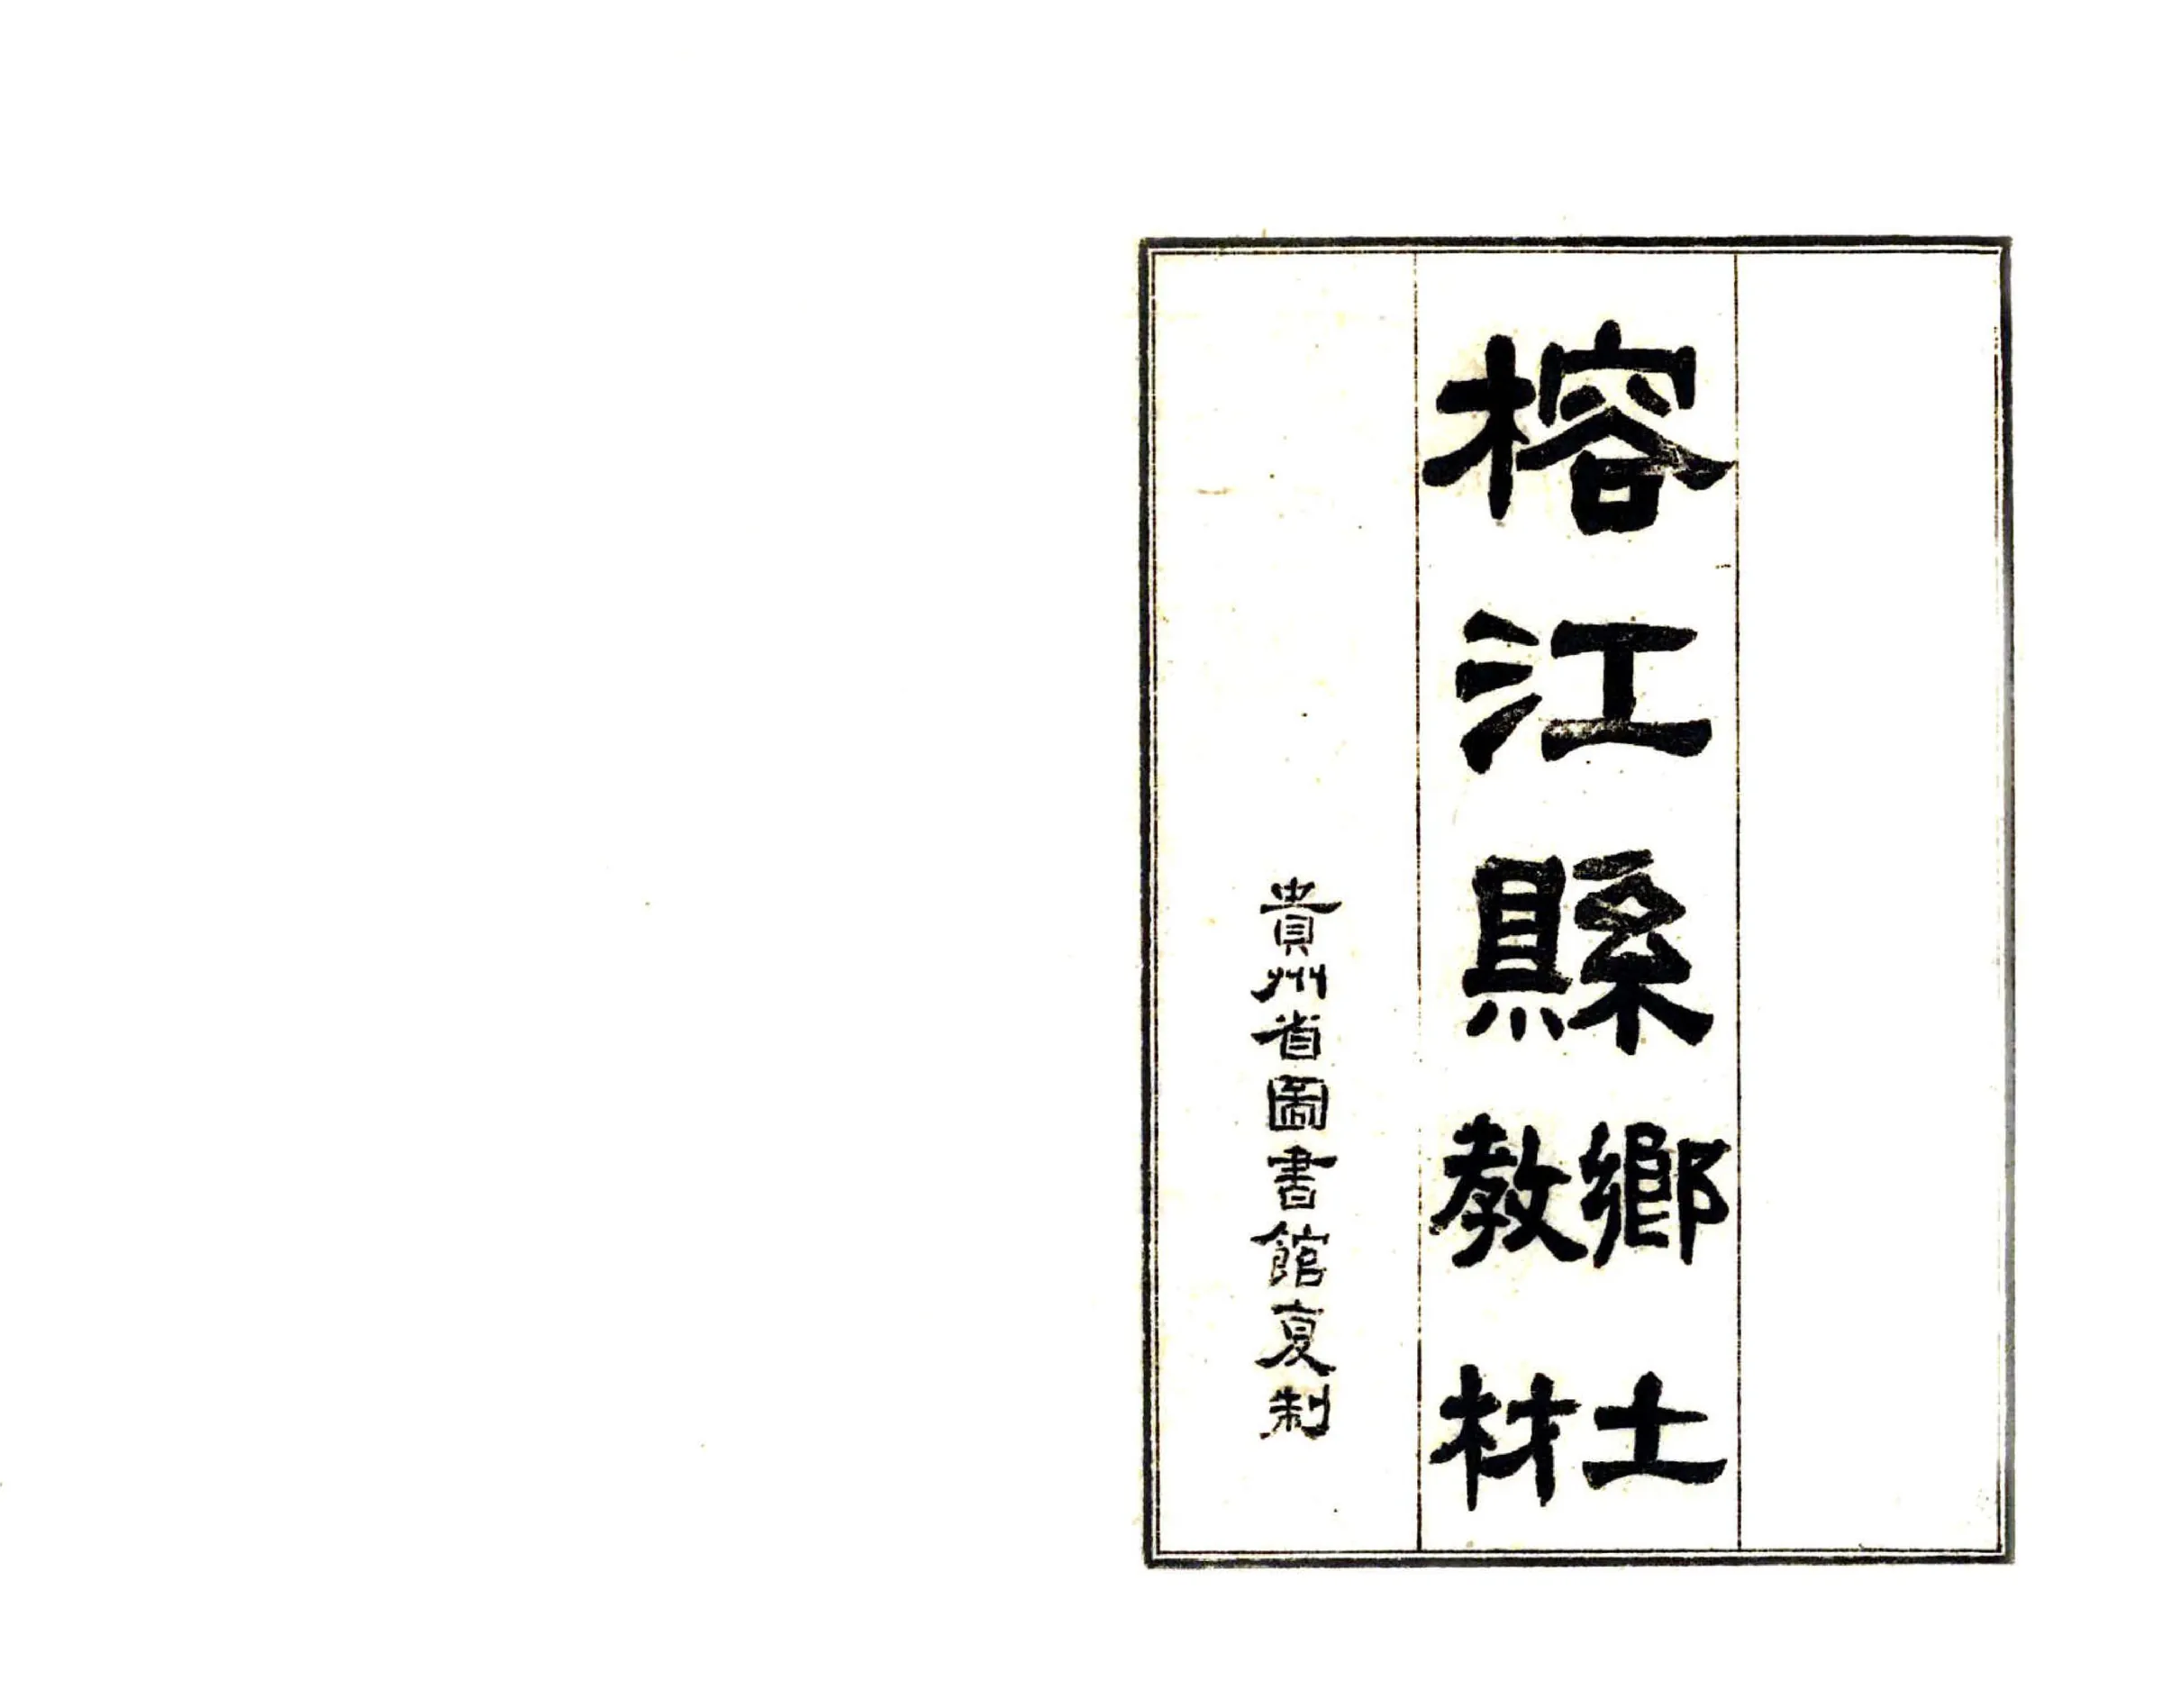 榕江縣鄉土教材
貴州省圖書館复制